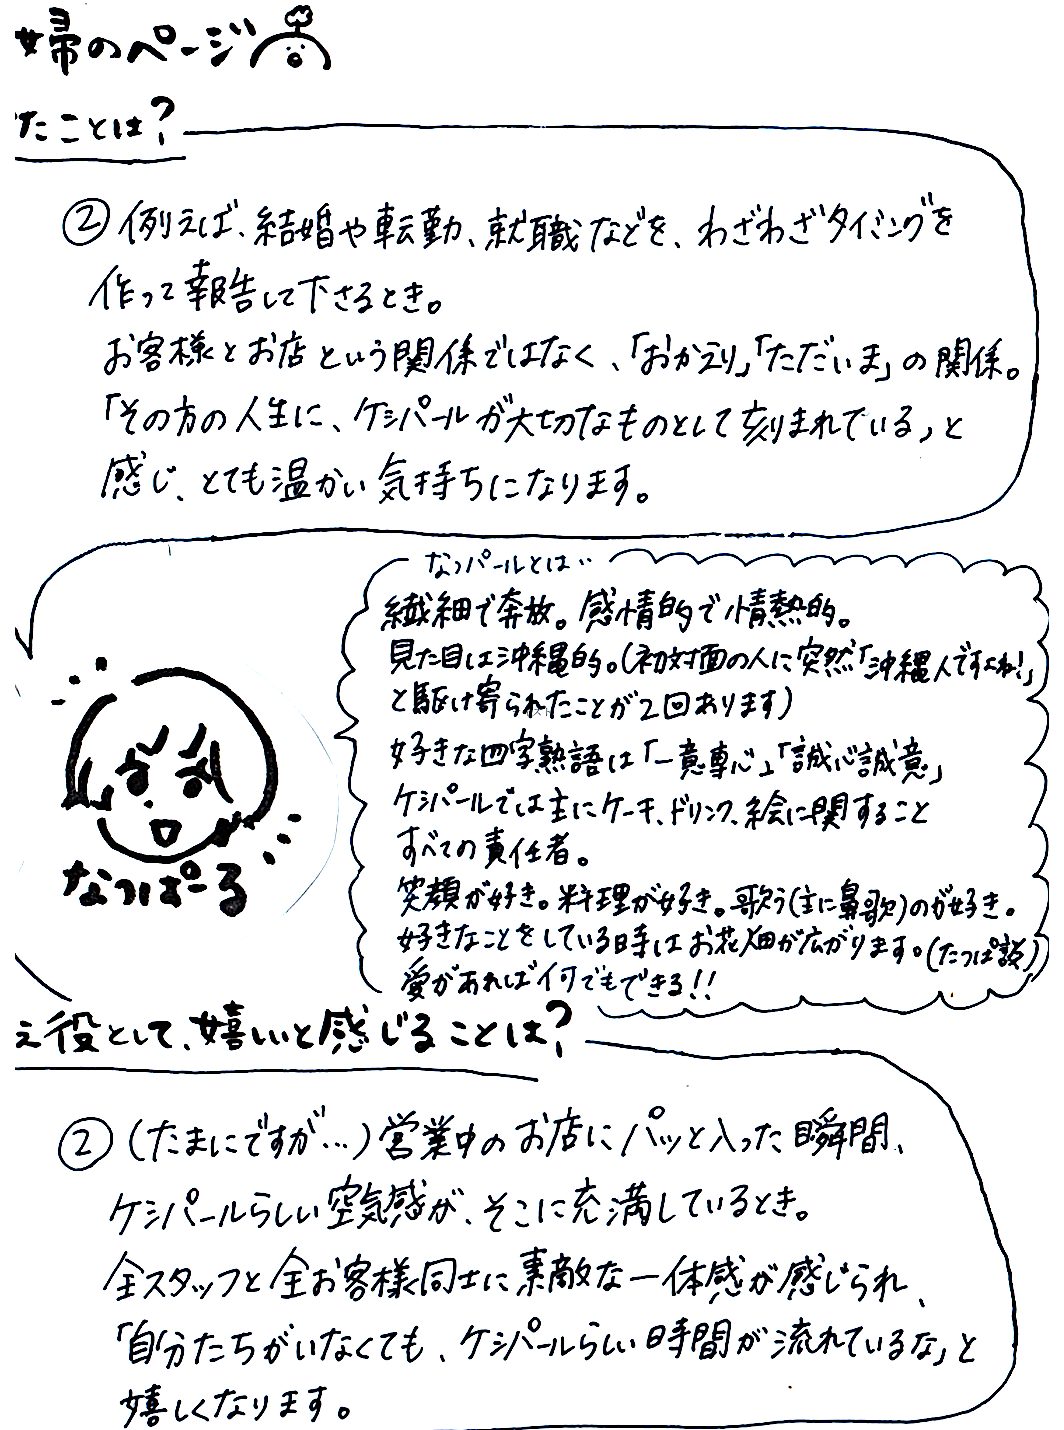 婦のページ
たことは?
② 例えば、結婚や転勤、就職などを、わざわざタイミングを
作って報告して下さるとき。
お客様とお店という関係ではなく、「おかえり」「ただいま」の関係。
「その方の人生に、ケシパールが大切なものとして刻まれている」と
感じ、とても温かい気持ちになります。
なつパールとは…
繊細で奔放。感情的で情熱的。
見た目は沖縄的。(初対面の人に突然「沖縄人ですよね!」
と駆け寄られたことが2回あります)
好きな四字熟語は「一意専心」「誠心誠意」
ケシパールでは主にケーキ、ドリンク、絵に関すること
すべての責任者。
笑顔が好き。料理が好き。歌う(主に鼻歌)のが好き。
好きなことをしている時はお花畑が広がります。(たっぱ談)
愛があれば何でもできる!!
なつぱーる
え役として、嬉しいと感じることは?
② (たまにですが…)営業中のお店にパッと入った瞬間、
ケシパールらしい空気感が、そこに充満しているとき。
全スタッフと全お客様同士に素敵な一体感が感じられ、
「自分たちがいなくても、ケシパールらしい時間が流れているな」と
嬉しくなります。